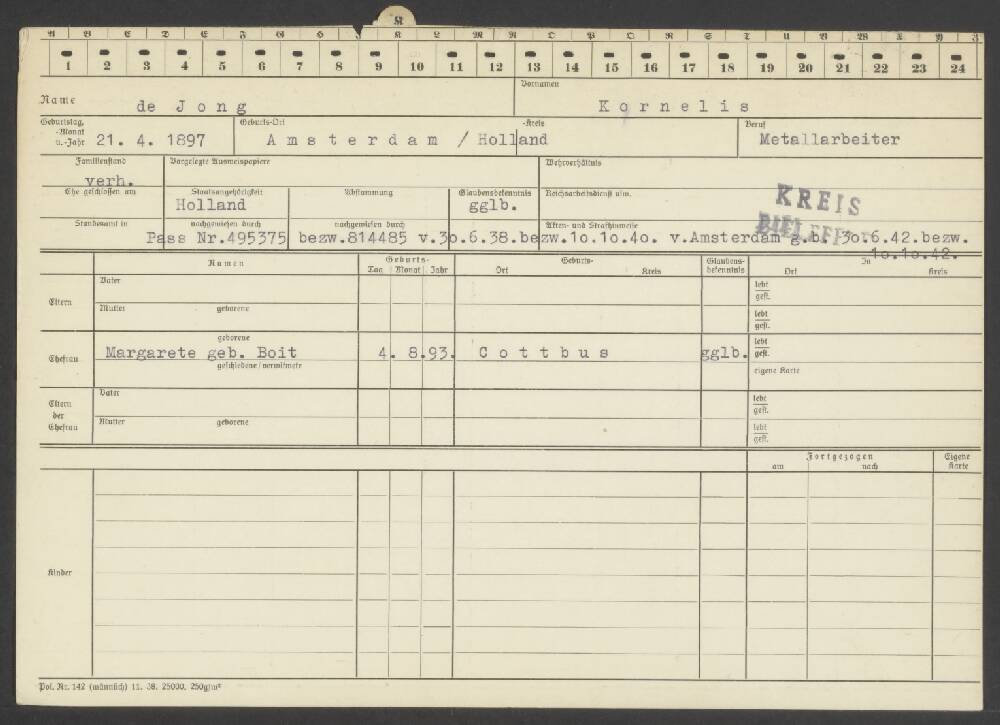 K
A B C D E F G H J K L M N O P Q R S T U V W X Y Z
1 2 3 4 5 6 7 8 9 10 11 12 13 14 15 16 17 18 19 20 21 22 23 24
Name de Jong Vornamen Kornelis
Geburtstag, -Monat u. -Jahr 21. 4. 1897 Geburts-Ort Amsterdam / Holland -Kreis Beruf Metallarbeiter
Familienstand verh. Vorgelegte Ausweispapiere Wehrverhältnis
Ehe geschlossen am Staatsangehörigkeit Holland Abstammung Glaubensbekenntnis gglb. Reichsarbeitsdienst usw.
KREIS
BIELEFELD
Standesamt in nachgewiesen durch nachgewiesen durch Akten- und Strafhinweise
Pass Nr.495375 bezw.814485 v.3o.6.38.bezw.1o.1o.4o. v.Amsterdam g.b. 3o.6.42.bezw.
1o.1o.42.
Namen Geburts- Tag Monat Jahr Geburts- Ort Kreis Glaubens-bekenntnis In Ort Kreis
Eltern Vater lebt gest.
Mutter geborene lebt gest.
Ehefrau geborene lebt gest.
Margarete geb. Boit 4. 8.93. Cottbus gglb.
geschiedene / verwitwete eigene Karte
Eltern der Ehefrau Vater lebt gest.
Mutter geborene lebt gest.
Fortgezogen am nach Eigene Karte
Kinder
Pol. Nr. 142 (männlich) 11. 38. 25000, 250g/m²